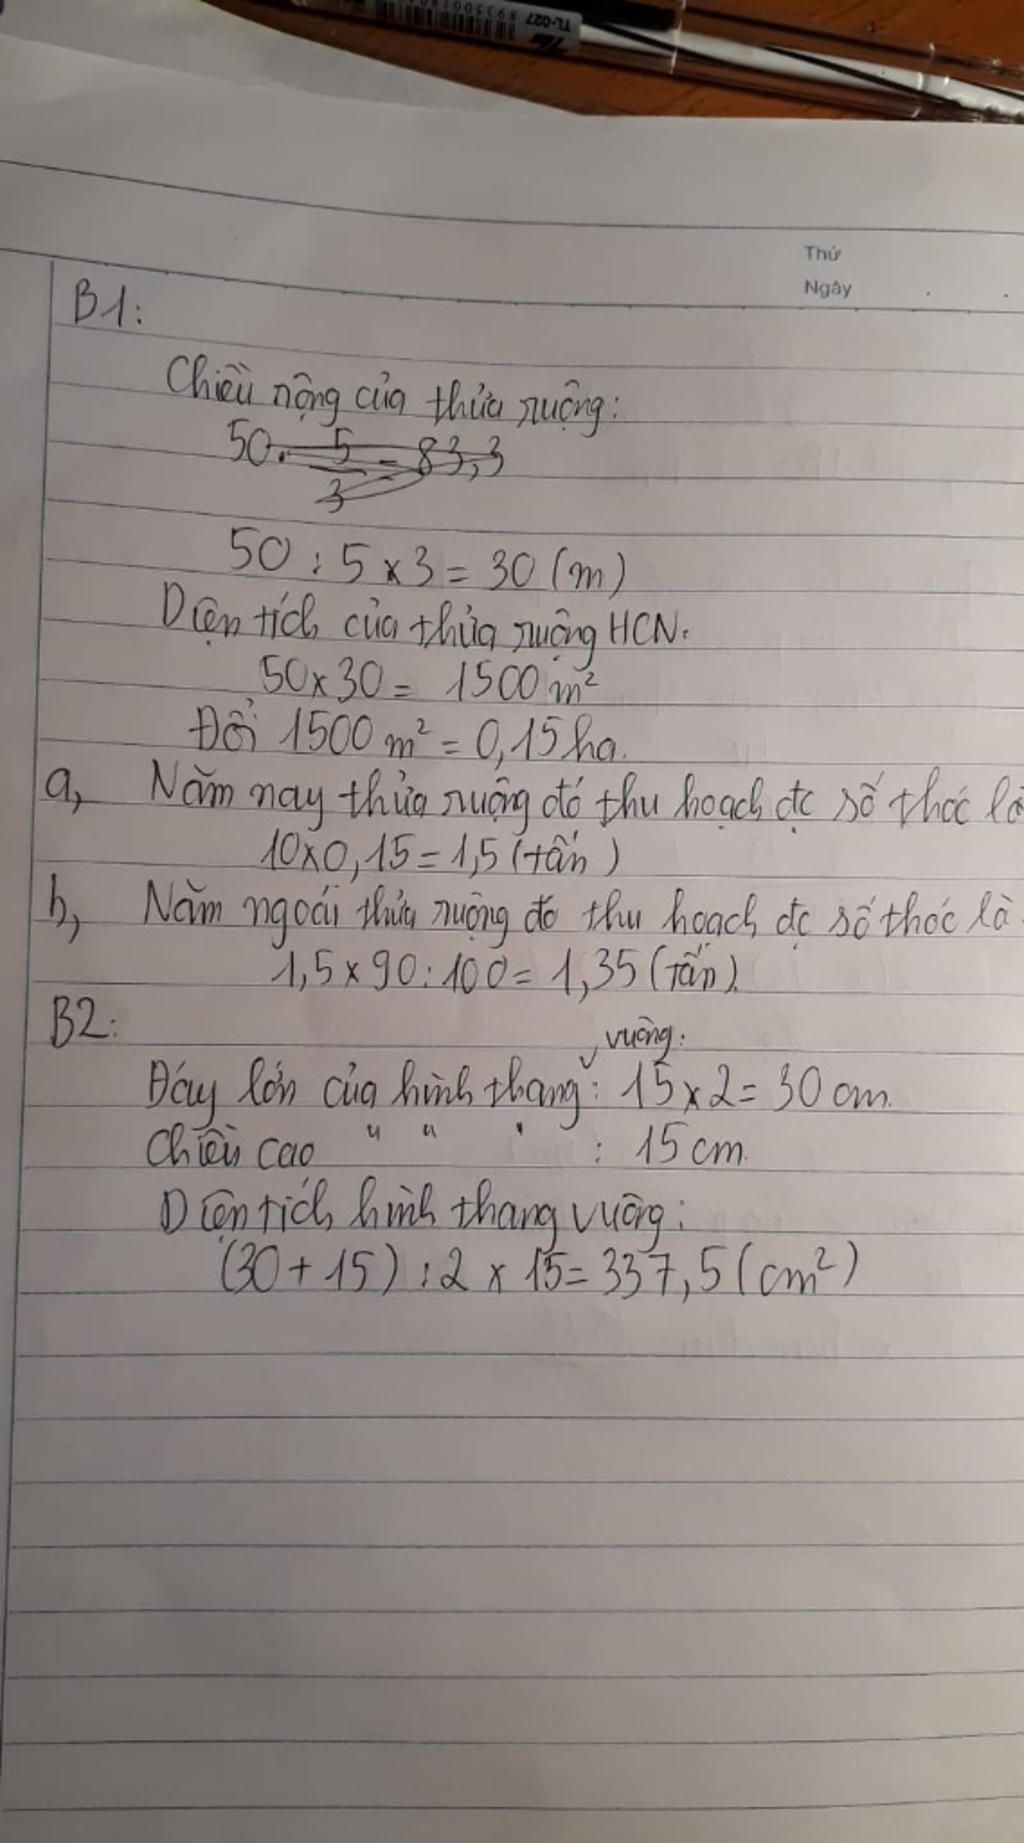 TL-027
Thứ
Ngày
B1:
Chiều rộng của thửa ruộng:
50 . 5/3 = 83,3
50 : 5 x 3 = 30 (m)
Diện tích của thửa ruộng HCN:
50 x 30 = 1500 m²
Đổi 1500 m² = 0,15 ha.
a, Năm nay thửa ruộng đó thu hoạch đc số thóc là
10 x 0,15 = 1,5 (tấn)
b, Năm ngoái thửa ruộng đó thu hoạch đc số thóc là
1,5 x 90 : 100 = 1,35 (tấn).
B2:
Đáy lớn của hình thang vuông: 15 x 2 = 30 cm.
Chiều cao " " " : 15 cm.
Diện tích hình thang vuông:
(30 + 15) : 2 x 15 = 337,5 (cm²)